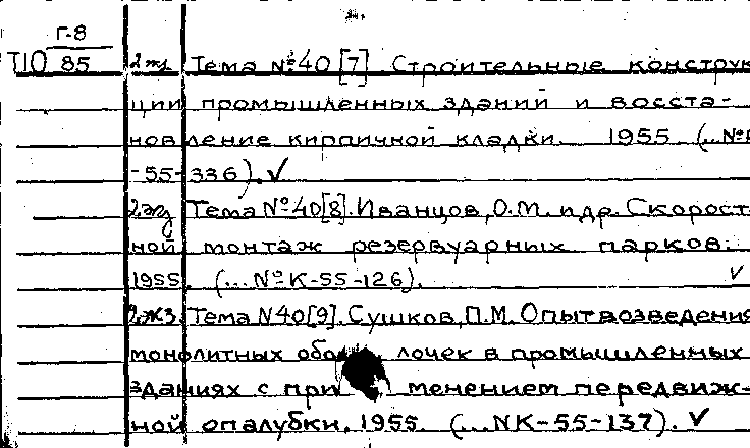 Г-8
Т10 85 2 жз Тема №40 [7] Строительные конструк
ции промышленных зданий и восста-
новление кирпичной кладки. 1955 (...№
-55-336). ✓
2жз Тема №40[8]. Иванцов, О.М. и др. Скорост
ной монтаж резервуарных парков.
1955. (...№К-55-126). ✓
2жз. Тема N40[9]. Сушков, П.М. Опыт возведения
монолитных оболочек в промышленных
зданиях с применением передвиж-
ной опалубки. 1955. (...NК-55-137). ✓